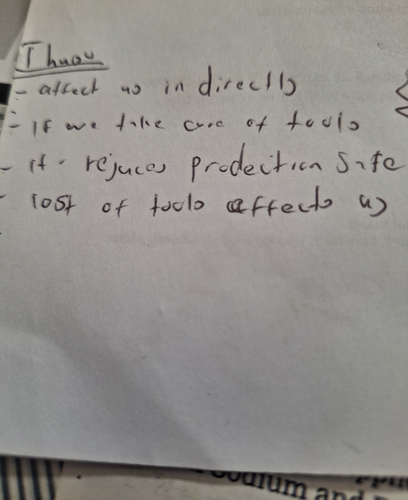 - affect us in directly
- If we take care of tools
- it rejuces prodection safe
- lost of tools affects us
odium and